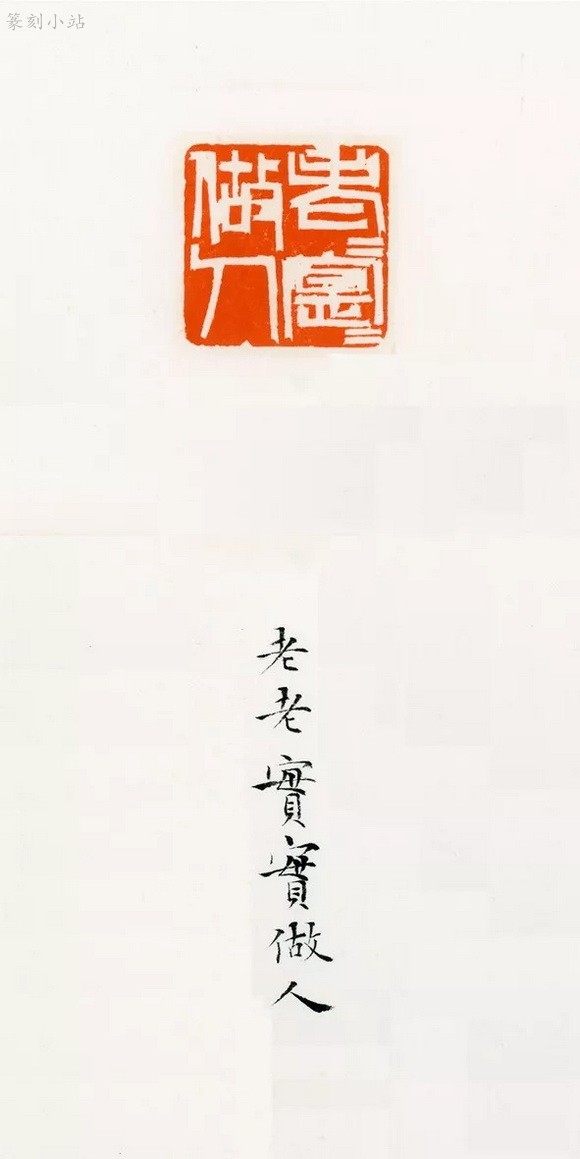 篆刻小站
老=實=
做人
老老實實做人